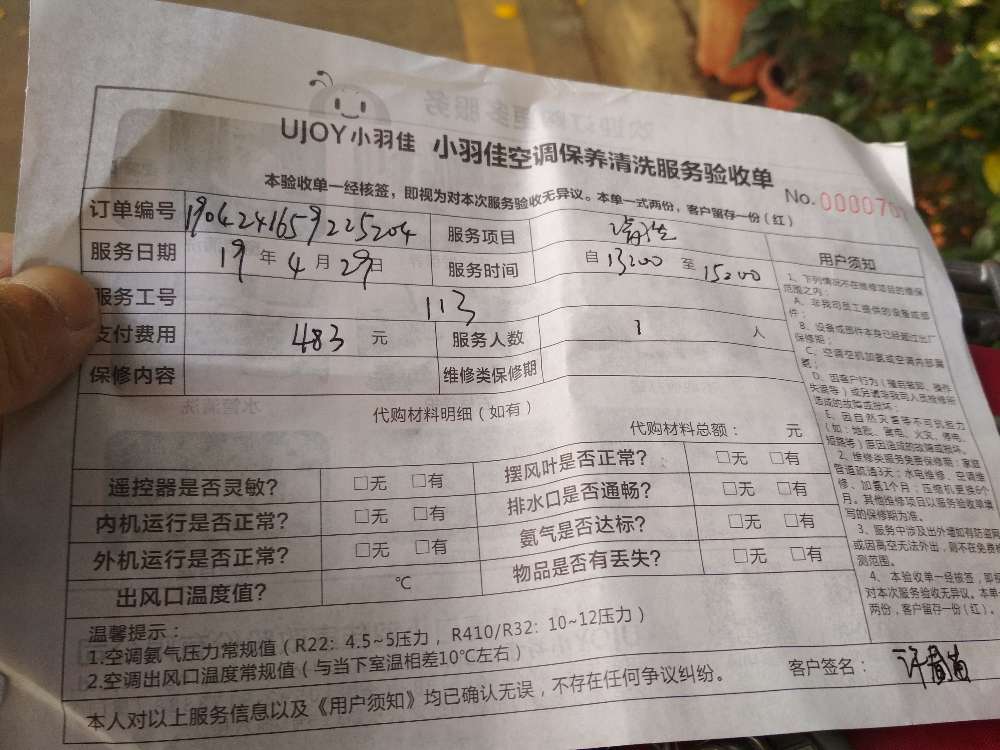 UJOY小羽佳 小羽佳空调保养清洗服务验收单
本验收单一经核签，即视为对本次服务验收无异议。本单一式两份，客户留存一份（红）
No.
订单编号 1904241659225204 服务项目 清洗
服务日期 19 年 4 月 29 日 服务时间 自 13:00 至 15:00
服务工号 113
支付费用 483 元 服务人数 1 人
保修内容 维修类保修期
代购材料明细（如有）
代购材料总额： 元
遥控器是否灵敏？ □无 □有 摆风叶是否正常？ □无 □有
内机运行是否正常？ □无 □有 排水口是否通畅？ □无 □有
外机运行是否正常？ □无 □有 氨气是否达标？ □无 □有
出风口温度值？ ℃ 物品是否有丢失？ □无 □有
温馨提示：
1.空调氨气压力常规值（R22：4.5~5压力，R410/R32：10~12压力）
2.空调出风口温度常规值（与当下室温相差10℃左右）
本人对以上服务信息以及《用户须知》均已确认无误，不存在任何争议纠纷。
客户签名：
用户须知
1、下列情况不在维修项目的维保
范围之内：
A、非我司员工提供的设备或部
件；
B、设备或部件本身已经超过出厂
保修期；
C、空调空机加氨或空调内部漏
氨；
E、因自然灾害等不可抗能力
（如：地震、雷电、火灾、停电、
短路等）原因造成的故障或损坏。
2、维修类服务免费保修期：家庭
管道疏通3天；水电维修、空调维
修、加氨1个月；压缩机更换6个
月。其他维修项目以服务验收单填
写的保修期为准。
3、服务中涉及出外墙如有防盗网
或因高空无法外出，则不在免费检
测范围。
4、本验收单一经核签，即视
对本次服务验收无异议。本单一
两份，客户留存一份（红）。